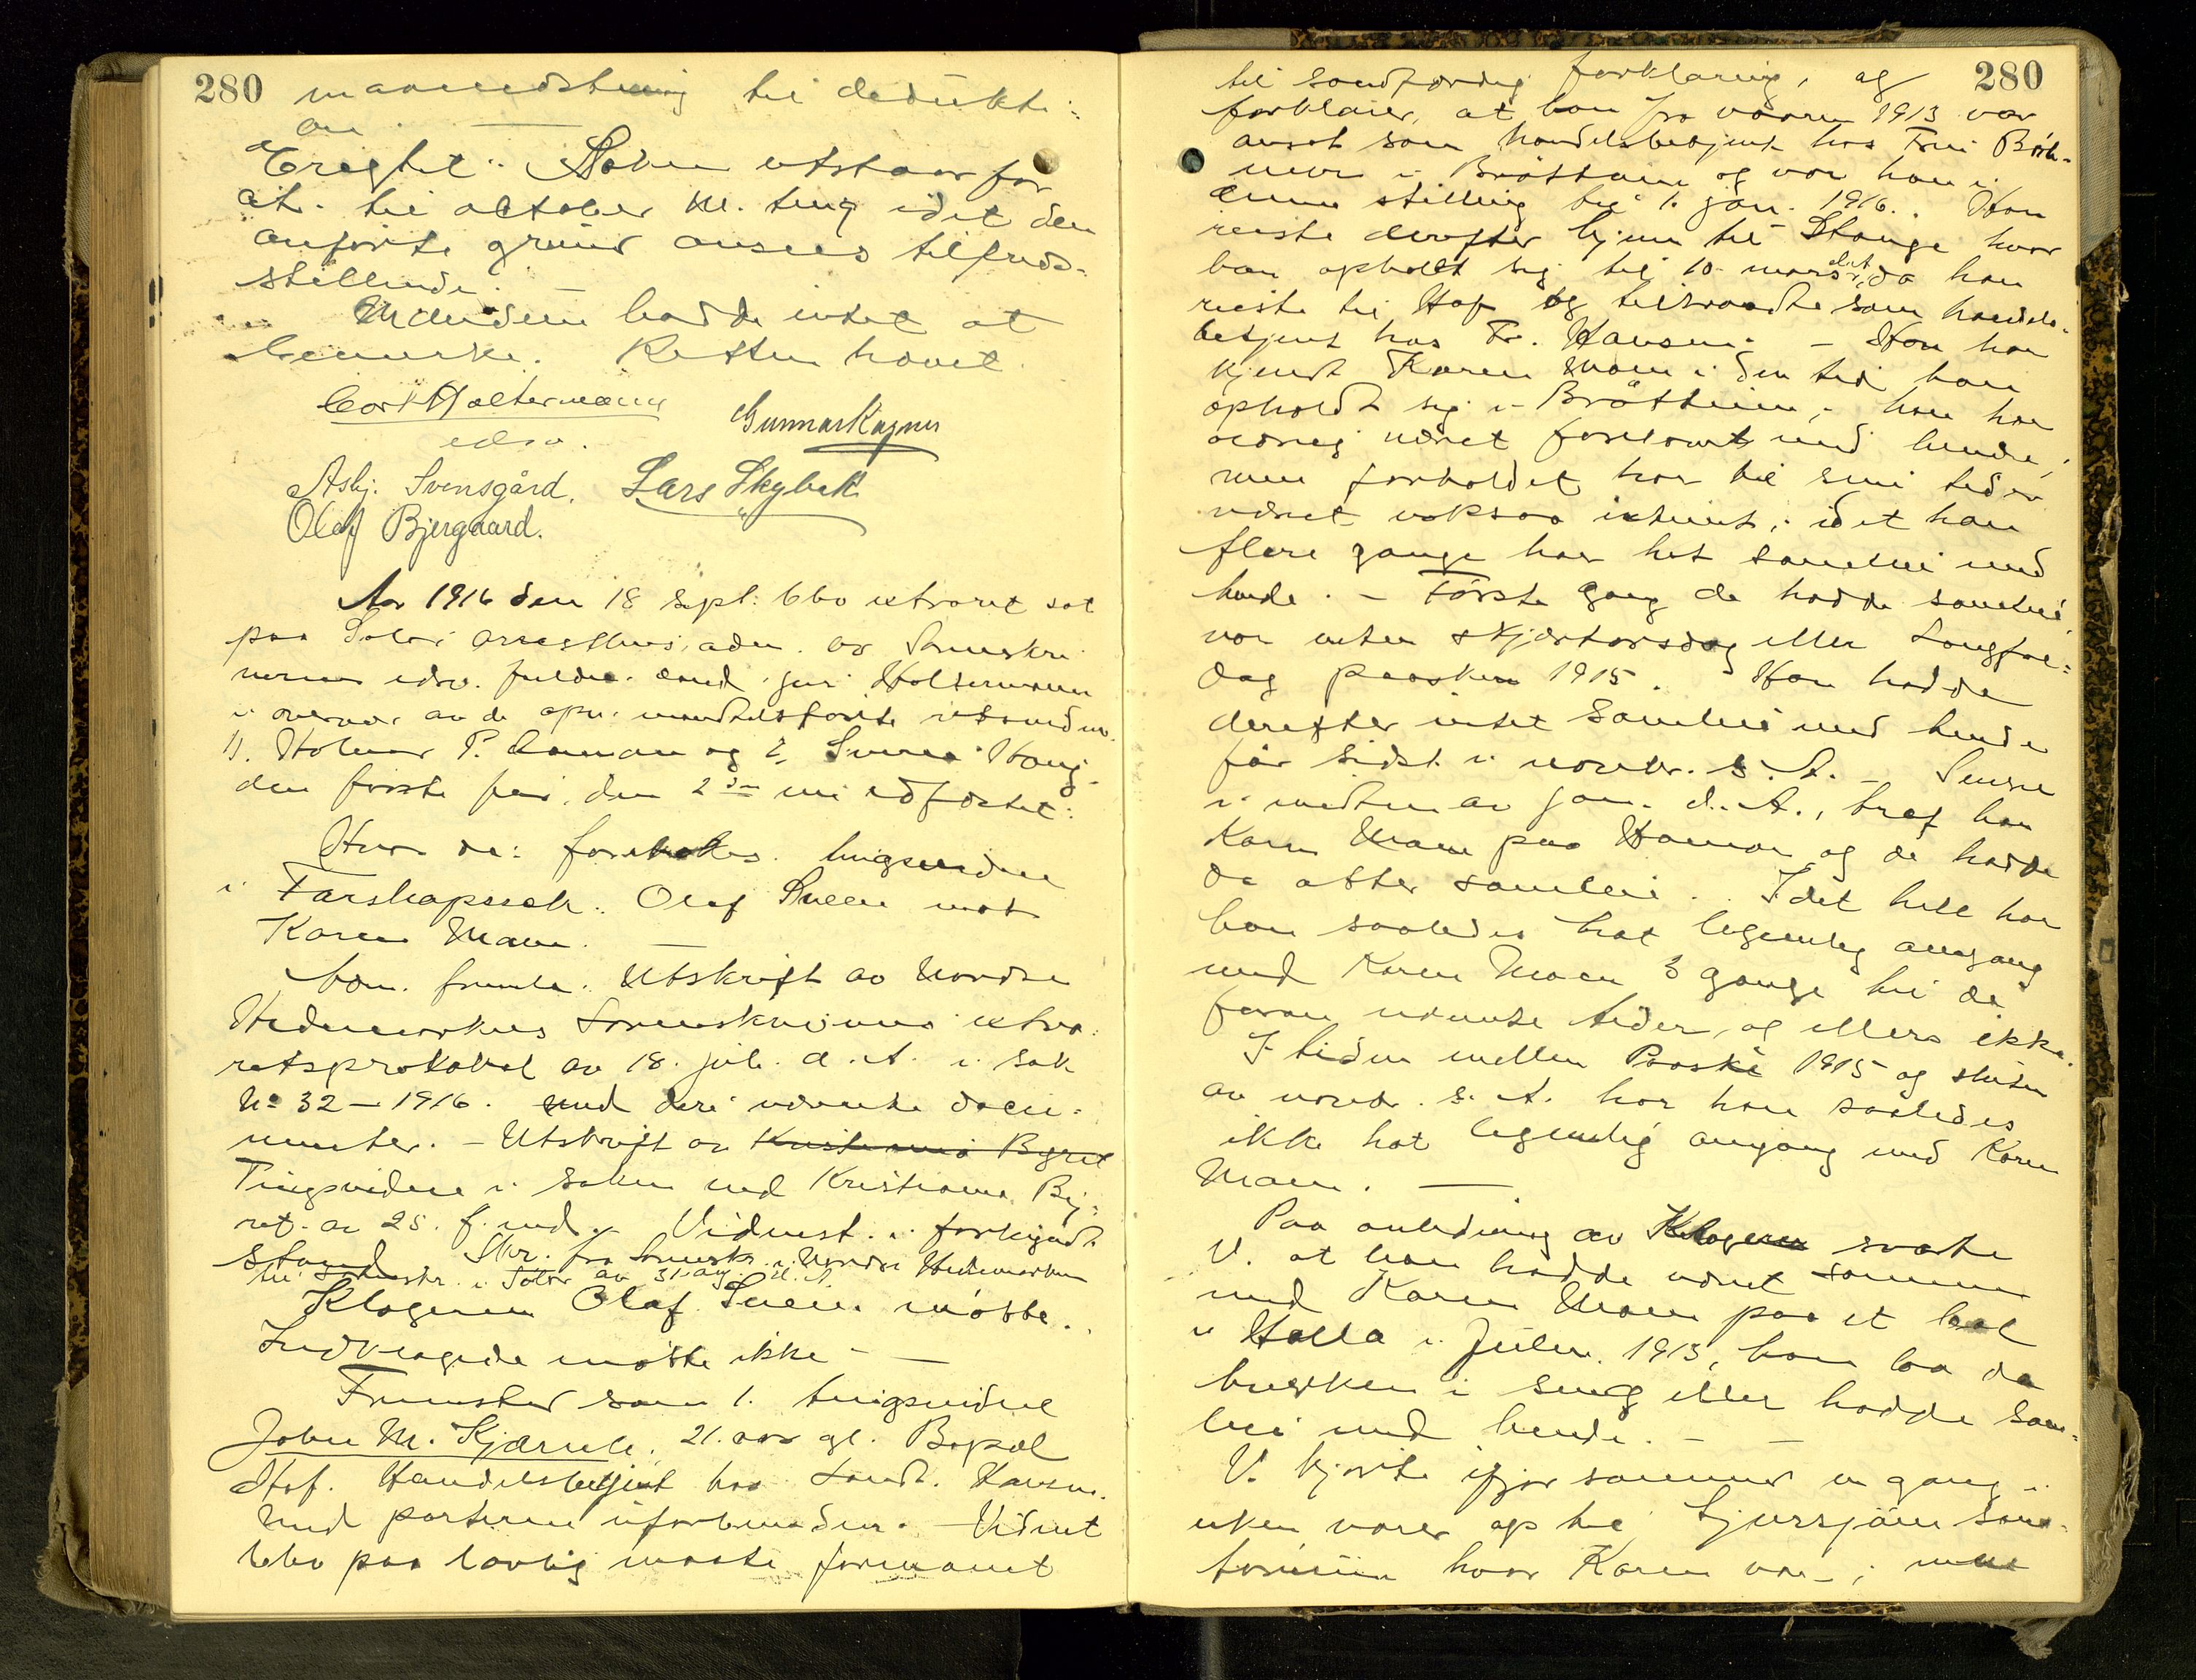 280
maanedstning til deduktion.
Eragtet: Saken utstaar for
at til october m. ting idet den
anførte grund ansees tilfreds-
stillende. —
Mændene hadde intet at
bemerke. Retten hævet.
Carl Holtermann
edsv.
Gunnar Ragnes
Asbj. Svensgård. Lars Skybak
Olaf Bjergaard.
Aar 1916 den 18 sept. blev extraret sat
paa Solør arresthus, adm. av Sorenskri
verens edsv. fuldm. cand. jur. Holtermann
i overvær av de opn. retsvidner
1. Holmer P. Aaman og 2, Haug
den første fær. den 2den edfæstet:
Hvor da: foretokes tingsvidne
i Farskapssak: Olaf Sveen mot
Karen Moen. —
Dom. fremla. Utskrift av Nordre
Hedemarkens Sorenskriveris extra-
retsprotokol av 18. juli d. A. i sak
No 32 – 1916. med deri nævnte docu-
menter. – Utskrift av Kristiania Byret
Tingsvidne i saken ved Kristiania By-
ret av 25. f. md. Vidnest. i forkyndt
stand Skr. fra Sorenskr. i Nordre Hedemarken
til Sorenskr. i Solør av 31. aug. d. A.
Klageren Olaf Sveen møtte.
Indklagede møtte ikke —
Fremstod som 1. tingsvidne
John M. Kjærnli, 21. aar gl. Bopæl
Hof. Handelsbetjent hos Landh. Hansen.
Med parterne uforbunden. – Vidnet
blev paa lovlig maate formanet
280
til sandfærdig forklaring, og
forklarer, at han fra vaaren 1913 var
ansat som handelsbetjent hos Fru
i Brøttum og var han i
denne stilling til 1. jan. 1916. Han
reiste derefter hjem til Stange hvor
han opholdt sig til 10. mars d. A. da han
reiste til Hof og tiltraadte som handels-
betjent hos Fr. Hansen. – Han har
kjendt Karen Moen i den tid han
opholdt sig i Brøttum; han har
aldrig været forlovet med hende,
men forholdet har til sine tider
været noksaa intimt, idet han
flere gange har hat samleie med
hende. – Første gang de hadde samleie,
var enten skjærtorsdag eller Langfre-
dag paasken 1915. Han hadde
derefter intet samleie med hende
før sidst i novbr. s. A. – Senere
i midten av jan. d. A., traf han
Karen Moen paa Hamar og de hadde
da atter samleie. I det hele har
han saaledes hat legemlig omgang
med Karen Moen 3 gange til de
foran nævnte tider, og ellers ikke.
I tiden mellem Paaske 1915 og slutten
av novbr. s. A. har han saaledes
ikke hat legemlig omgang med Karen
Moen. —
Paa anledning av Klageren svarte
V. at han hadde været sammen
med Karen Moen paa et bal
i Halla i Julen 1913, han laa da
hverken i seng eller hadde sam-
leie med hende. – —
V. kjørte ifjor sommer en gang i
uken varer op til Sjusjøen Sana-
torium hvor Karen var; men